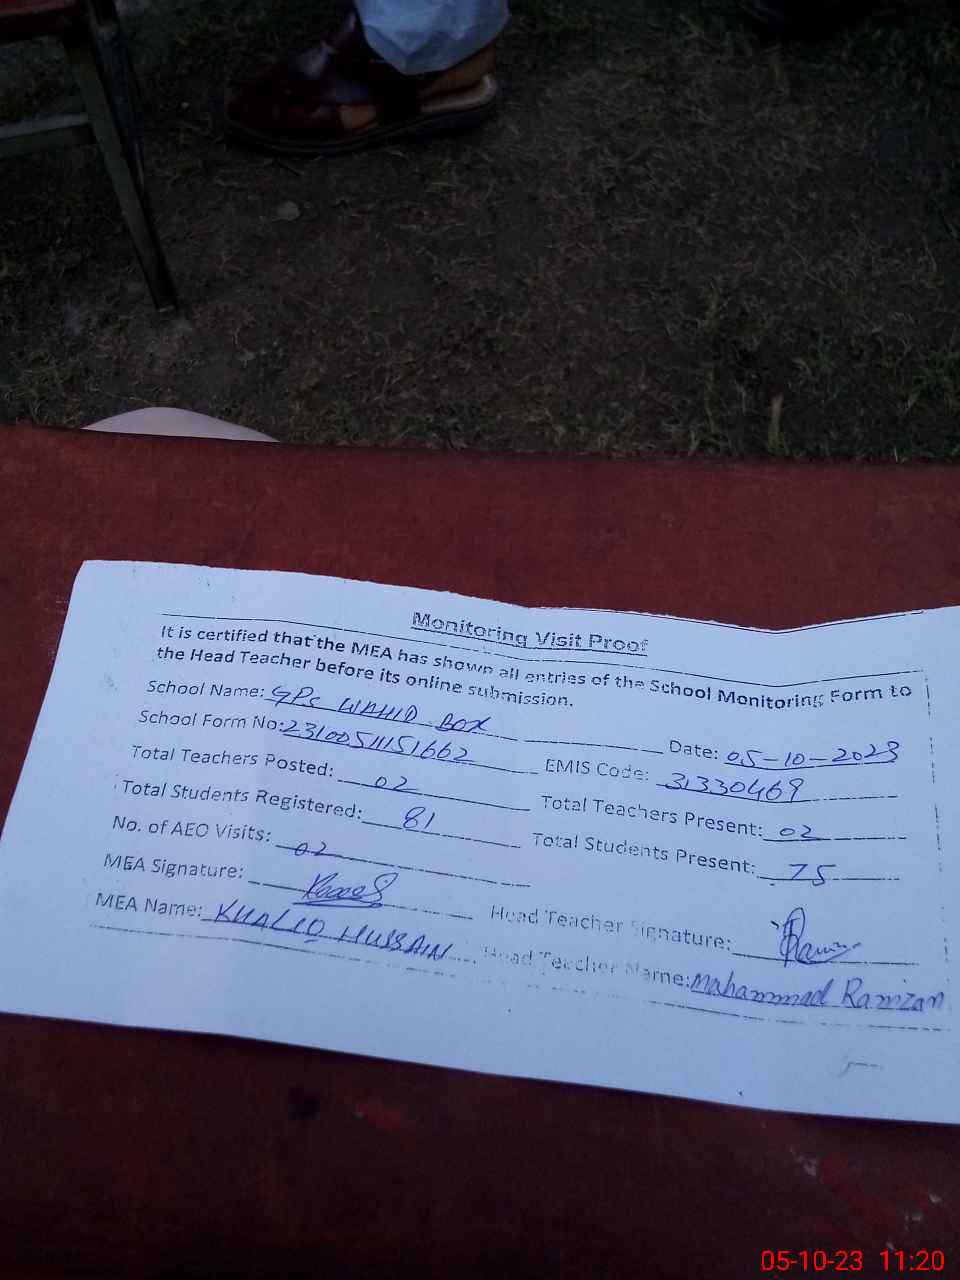 Monitoring Visit Proof
It is certified that the MEA has shown all entries of the School Monitoring Form to
the Head Teacher before its online submission.
School Name: GPS WAHID BOX Date: 05-10-2023
School Form No: 2310051151662 EMIS Code: 31330469
Total Teachers Posted: 02 Total Teachers Present: 02
Total Students Registered: 81 Total Students Present: 75
No. of AEO Visits: 02
MEA Signature: Head Teacher Signature:
MEA Name: KHALID HUSSAIN Head Teacher Name: Mahammad Ramzan
05-10-23 11:20